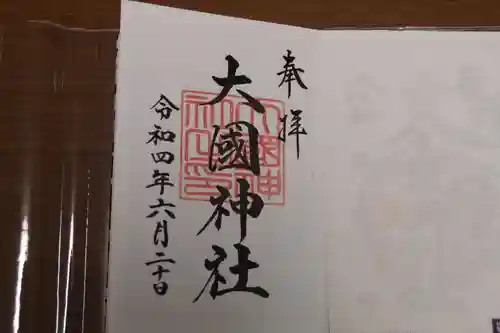 奉拝
大國神社
令和四年六月二十日